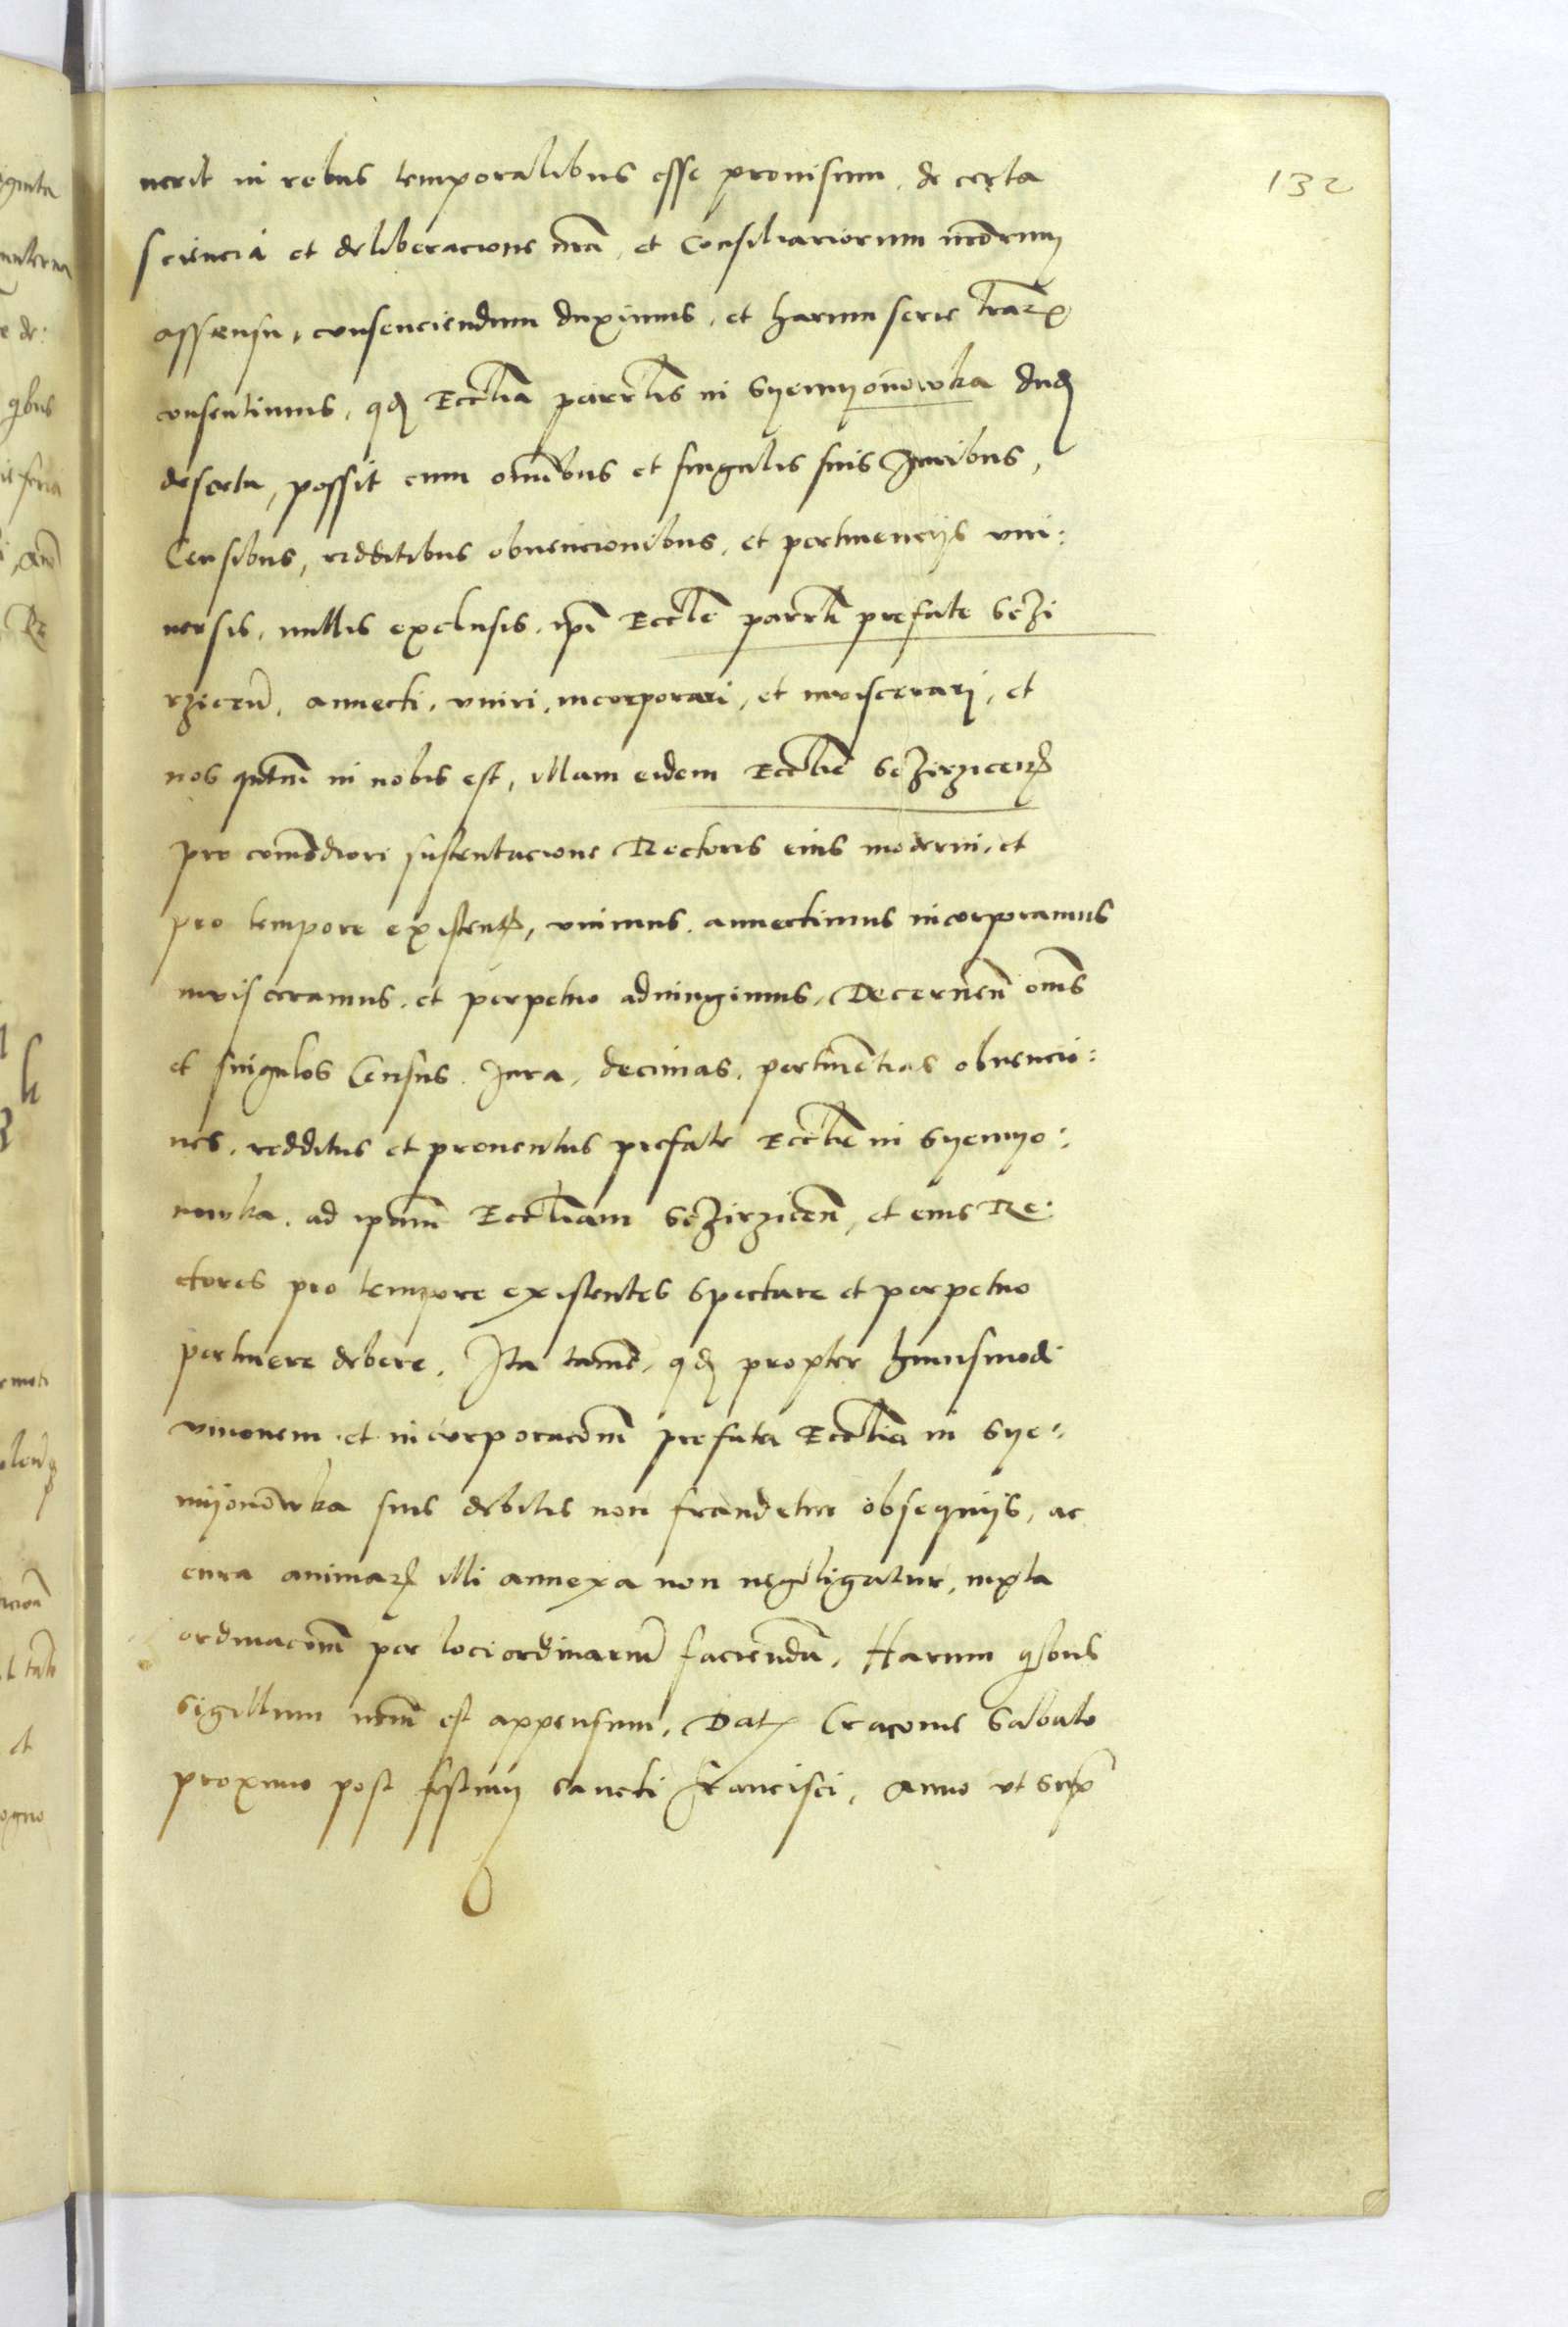 132
uerit in rebus temporalibus esse prouisum, de certa
sciencia et deliberacione nrã, et Consiliariorum nrõrum
assensu, consenciendum duximus, et harum serie lrãrꝫ
consentimus, qđ Ecclia parrlis in Syemyonowka dudũ
deserta, possit cum omnibus et singulis suis Iuribus,
Censibus, redditibus obuencionibus, et pertinencijs vni:
uersis, nullis exclusis, ipi Ecclie parrli prefate
annecti, vniri, incorporari, et inviscerari, et
nos qntum in nobis est, illam eidem Ecclie
pro comodiori sustentacione Rectoris eius moderni, et
pro tempore existen, vnimus, annectimus incorporamus
inuisceramus, et perpetuo adiungimus, Decernen omes
et singulos Census, Iura, decimas, pertinentias obuencio:
nes, redditus et prouentus prefate Ecclie in Syemyo:
nowka, ad ipam Eccliam et eius Re:
ctores pro tempore existentes spectare et perpetuo
pertinere debere. Ita tamẽ, qđ propter huiusmodi
vnionem et incorporacõnem prefata Ecclia in Sye:
myonowka suis debitis non fraudetur obsequijs, ac
cura animarꝫ illi annexa non negligatur, iuxta
ordinacõnem per loci ordinarium faciendã, Harum qbus
sigillum nrm est appensum, Datꝫ Cracouie Sabbato
proximo post festum sancti Francisci, Anno vt sup